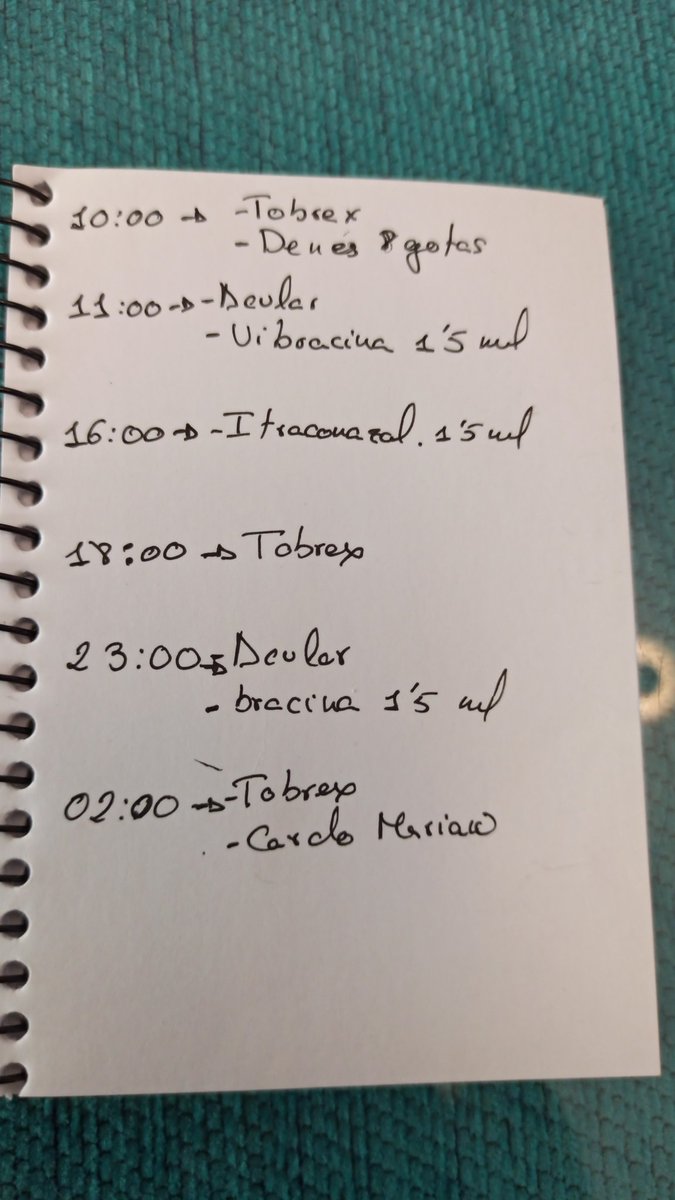 10:00 → -Tobrex
- Denes 8 gotas
11:00 → - Acular
- Vibracina 1'5 ml
16:00 → - Itraconazol. 1'5 ml
18:00 → Tobrex
23:00 → Acular
- bracina 1'5 ml
02:00 → -Tobrex
- Cardo Mariano